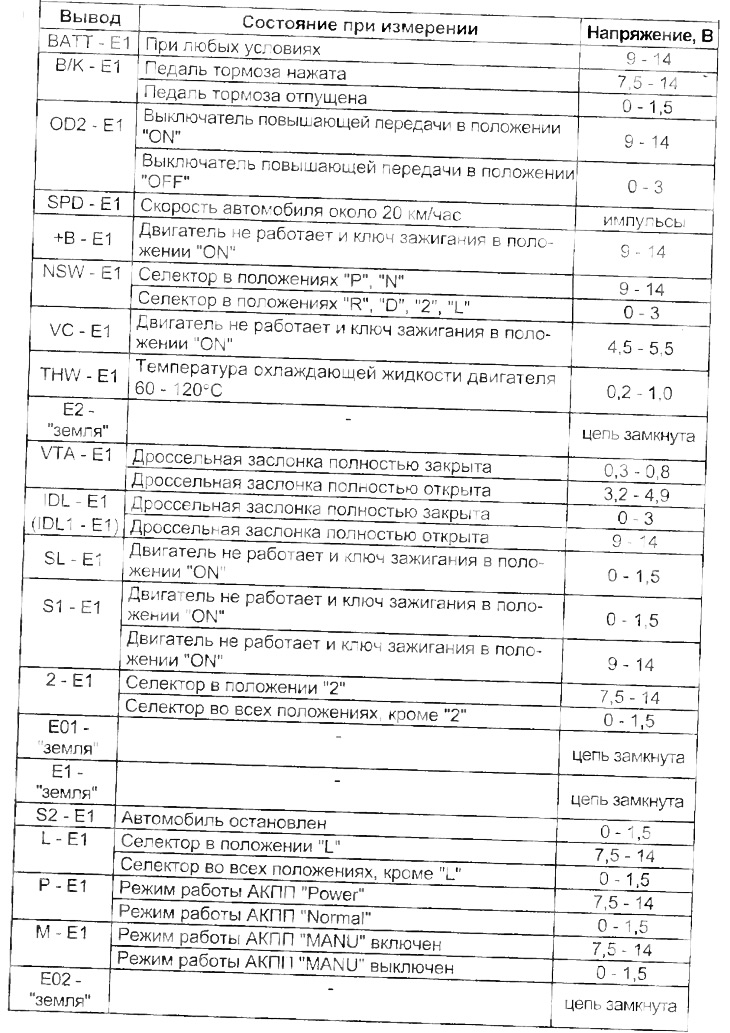 Вывод
Состояние при измерении
Напряжение, В
BATT - E1
При любых условиях
9 - 14
B/K - E1
Педаль тормоза нажата
7,5 - 14
Педаль тормоза отпущена
0 - 1,5
OD2 - E1
Выключатель повышающей передачи в положении
"ON"
9 - 14
Выключатель повышающей передачи в положении
"OFF"
0 - 3
SPD - E1
Скорость автомобиля около 20 км/час
импульсы
+B - E1
Двигатель не работает и ключ зажигания в поло-
жении "ON"
9 - 14
NSW - E1
Селектор в положениях "P", "N"
9 - 14
Селектор в положениях "R", "D", "2", "L"
0 - 3
VC - E1
Двигатель не работает и ключ зажигания в поло-
жении "ON"
4,5 - 5,5
THW - E1
Температура охлаждающей жидкости двигателя
60 - 120°C
0,2 - 1,0
E2 -
"земля"
-
цепь замкнута
VTA - E1
Дроссельная заслонка полностью закрыта
0,3 - 0,8
Дроссельная заслонка полностью открыта
3,2 - 4,9
IDL - E1
(IDL1 - E1)
Дроссельная заслонка полностью закрыта
0 - 3
Дроссельная заслонка полностью открыта
9 - 14
SL - E1
Двигатель не работает и ключ зажигания в поло-
жении "ON"
0 - 1,5
S1 - E1
Двигатель не работает и ключ зажигания в поло-
жении "ON"
0 - 1,5
Двигатель не работает и ключ зажигания в поло-
жении "ON"
9 - 14
2 - E1
Селектор в положении "2"
7,5 - 14
Селектор во всех положениях, кроме "2"
0 - 1,5
E01 -
"земля"
-
цепь замкнута
E1 -
"земля"
-
цепь замкнута
S2 - E1
Автомобиль остановлен
0 - 1,5
L - E1
Селектор в положении "L"
7,5 - 14
Селектор во всех положениях, кроме "L"
0 - 1,5
P - E1
Режим работы АКПП "Power"
7,5 - 14
Режим работы АКПП "Normal"
0 - 1,5
M - E1
Режим работы АКПП "MANU" включен
7,5 - 14
Режим работы АКПП "MANU" выключен
0 - 1,5
E02 -
"земля"
-
цепь замкнута